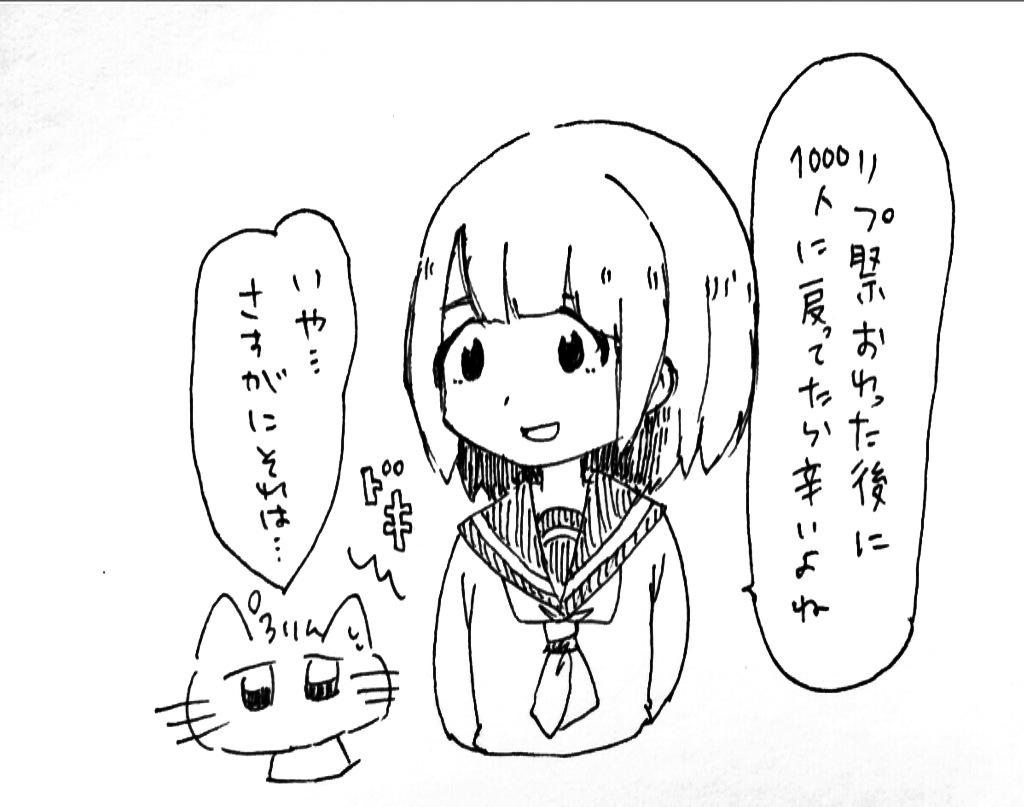 リプ祭おわった後に
1000人に戻ってたら辛いよね
いや…
さすがにそれは…
ドキ
ぷりん